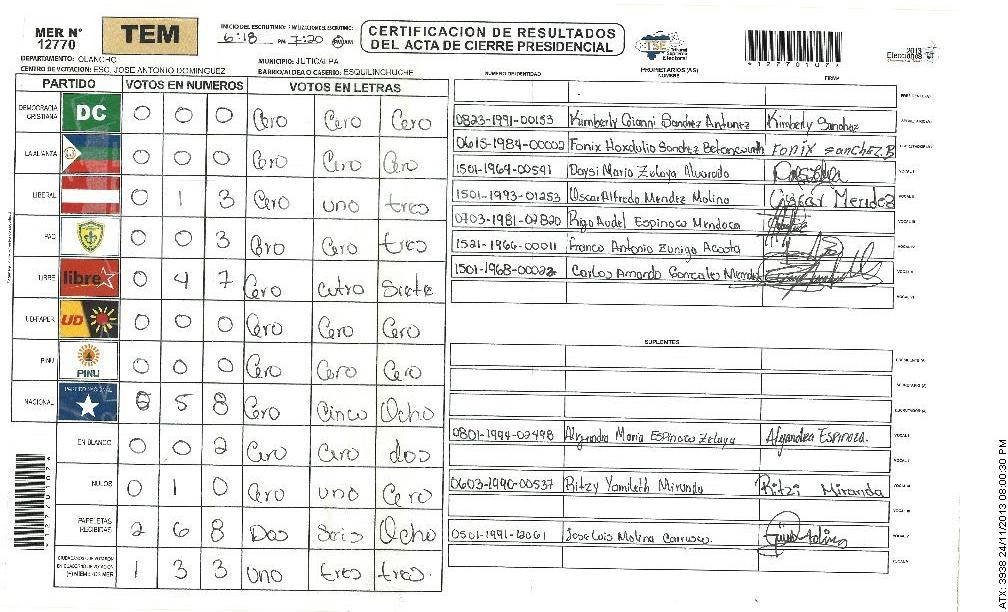 MER N° 12770
TEM
INICIO DEL ESCRUTINIO: FINALIZACION DEL ESCRUTINIO:
6:18 PM 7:20
CERTIFICACION DE RESULTADOS
DEL ACTA DE CIERRE PRESIDENCIAL
TSE Tribunal Supremo Electoral
1277010724
2013
Elecciones
DEPARTAMENTO: OLANCHO
MUNICIPIO: JUTICALPA
CENTRO DE VOTACION: ESC. JOSE ANTONIO DOMINGUEZ
BARRIO/ALDEA O CASERIO: ESQUILINCHUCHE
NUMERO DE IDENTIDAD
PROPIETARIOS (AS)
NOMBRE
FIRMA
PARTIDO VOTOS EN NUMEROS VOTOS EN LETRAS
DEMOCRACIA CRISTIANA DC 0 0 0 Cero Cero Cero
LA ALIANZA 0 0 0 Cero Cero Cero
LIBERAL 0 1 3 Cero uno tres
PAC 0 0 3 Cero Cero tres
LIBRE libre 0 4 7 Cero cutro Siete
UD-FAPER UD 0 0 0 Cero Cero Cero
PINU PINU 0 0 0 Cero Cero Cero
NACIONAL PARTIDO NACIONAL 0 5 8 Cero Cinco Ocho
EN BLANCO 0 0 2 Cero Cero dos
NULOS 0 1 0 Cero uno Cero
PAPELETAS RECIBIDAS 2 6 8 Dos Seis Ocho
CIUDADANOS QUE VOTARON EN CUADERNO DE VOTACION (+) MIEMBROS MER 1 3 3 uno tres tres.
0823-1991-00153 Kimberly Gianni Sanchez Antunez Kimberly Sanchez
0615-1984-00002 Fonix Hoxdulio Sanchez Betancourth Fonix Sanchez.B
1501-1964-00541 Daysi Maria Zelaya Alvarado
1501-1993-01253 Oscar Alfredo Mendez Molina Oscar Mendez
0703-1981-07820 Rigo Audel Espinoza Mendoza
1521-1966-00011 Franco Antonio Zuniga Acosta
1501-1968-00022 Carlos Amando Gonzales Mendez
SUPLENTES
0801-1994-02498 Alejandra Maria Espinoza Zelaya Alejandra Espinoza.
0603-1990-00537 Ritzy Yamileth Miranda Ritzi Miranda
0501-1991-12061 Jose Luis Molina Carrasco.
ATX: 3938 24/11/2013 08:00:30 PM